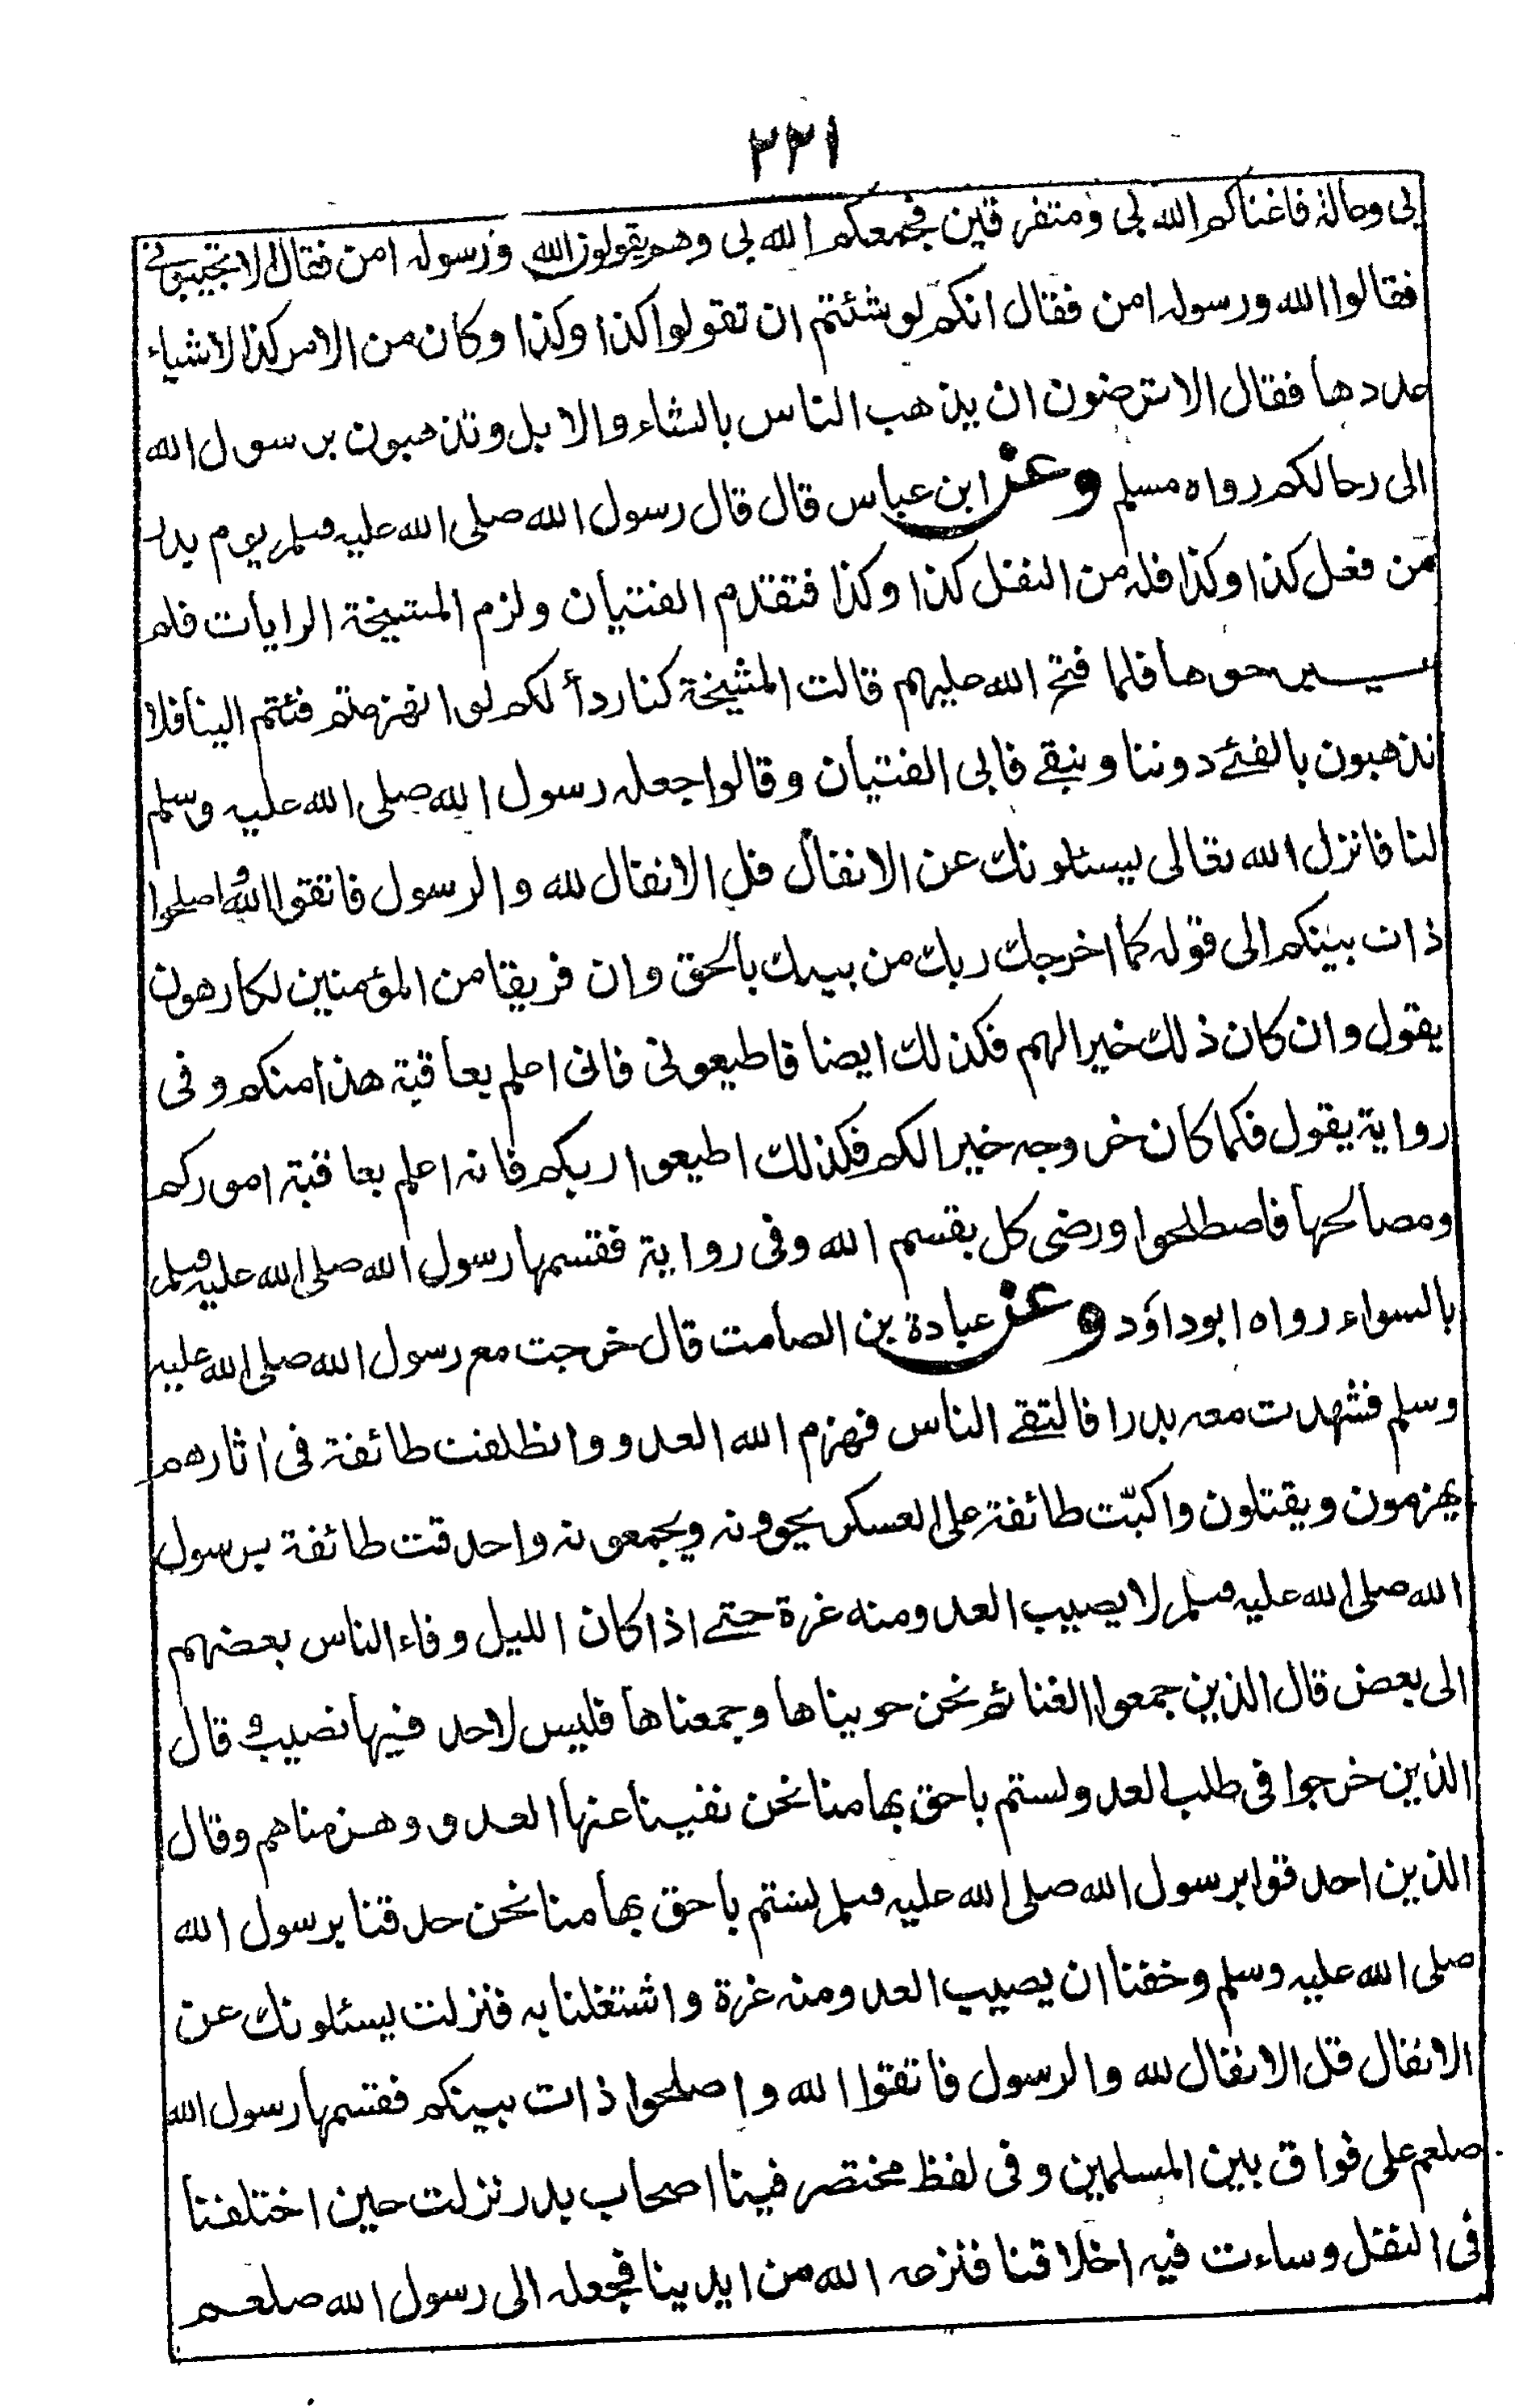 ٢٢١
بى وعالة فاغناكم الله بى ومتفرقين فجمعكم الله بى وهم يقولون الله ورسوله امن فقال الا تجيبونى
فقالوا الله ورسوله امن فقال انكم لو شئتم ان تقولوا كذا وكذا وكان من الامر كذا لاشياء
عددها فقال الا ترضون ان يذهب الناس بالشاء والابل وتذهبون برسول الله
الى رحالكم رواه مسلم وعن ابن عباس قال قال رسول الله صلى الله عليه وسلم يوم بدر
من فعل كذا وكذا فله من النفل كذا وكذا فتقدم الفتيان ولزم المشيخة الرايات فلم
يبرحوها فلما فتح الله عليهم قالت المشيخة كنا ردأ لكم لو انهزمتم فئتم الينا فلا
تذهبون بالفئے دوننا ونبقے فابى الفتيان وقالوا جعله رسول الله صلى الله عليه وسلم
لنا فانزل الله تعالى يسئلونك عن الانفال قل الانفال لله والرسول فاتقوا الله واصلحوا
ذات بينكم الى قوله كما اخرجك ربك من بيتك بالحق وان فريقا من المؤمنين لكارهون
يقول وان كان ذلك خيرا لهم فكذلك ايضا فاطيعونى فانى اعلم بعاقبة هذا منكم وفى
رواية يقول فكما كان خروجه خيرا لكم فكذلك اطيعوا ربكم فانه اعلم بعاقبة اموركم
ومصالحها فاصطلحوا ورضى كل بقسم الله وفى رواية فقسمها رسول الله صلى الله عليه وسلم
بالسواء رواه ابوداؤد وعن عبادة بن الصامت قال خرجت مع رسول الله صلى الله عليه
وسلم فشهدت معه بدرا فالتقے الناس فهزم الله العدو وانطلقت طائفة فى اثارهم
يهزمون ويقتلون واكبّت طائفة على العسكر يحوونه ويجمعونه واحدقت طائفة برسول
الله صلى الله عليه وسلم لا يصيب العدو منه غرة حتے اذا كان الليل وفاء الناس بعضهم
الى بعض قال الذين جمعوا الغنائم نحن حويناها وجمعناها فليس لاحد فيها نصيب و قال
الذين خرجوا فى طلب العدو لستم باحق بها منا نحن نفينا عنها العدو وهزمناهم وقال
الذين احدقوا برسول الله صلى الله عليه وسلم لستم باحق بها منا نحن حدقنا برسول الله
صلى الله عليه وسلم وخفنا ان يصيب العدو منه غرة واشتغلنا به فنزلت يسئلونك عن
الانفال قل الانفال لله والرسول فاتقوا الله واصلحوا ذات بينكم فقسمها رسول الله
صلعم على فواق بين المسلمين وفى لفظ مختصر فينا اصحاب بدر نزلت حين اختلفنا
فى النفل وساءت فيه اخلاقنا فنزعه الله من ايدينا فجعله الى رسول الله صلعم